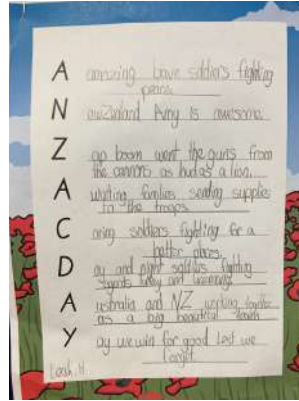 A amazing bave soldiers fighting
peace.
N ewZealand Army is awesome.
Z ap boom went the guns from
the cannons as loud as a lion.
A waiting families sending supplies
to the troops.
C aring soldiers fighting for a
better place.
D ay and night soldiers fighting
and
A ustralia and NZ working together
as a big beautiful team
Y ay we win for good Lest we
forget
Leah.H